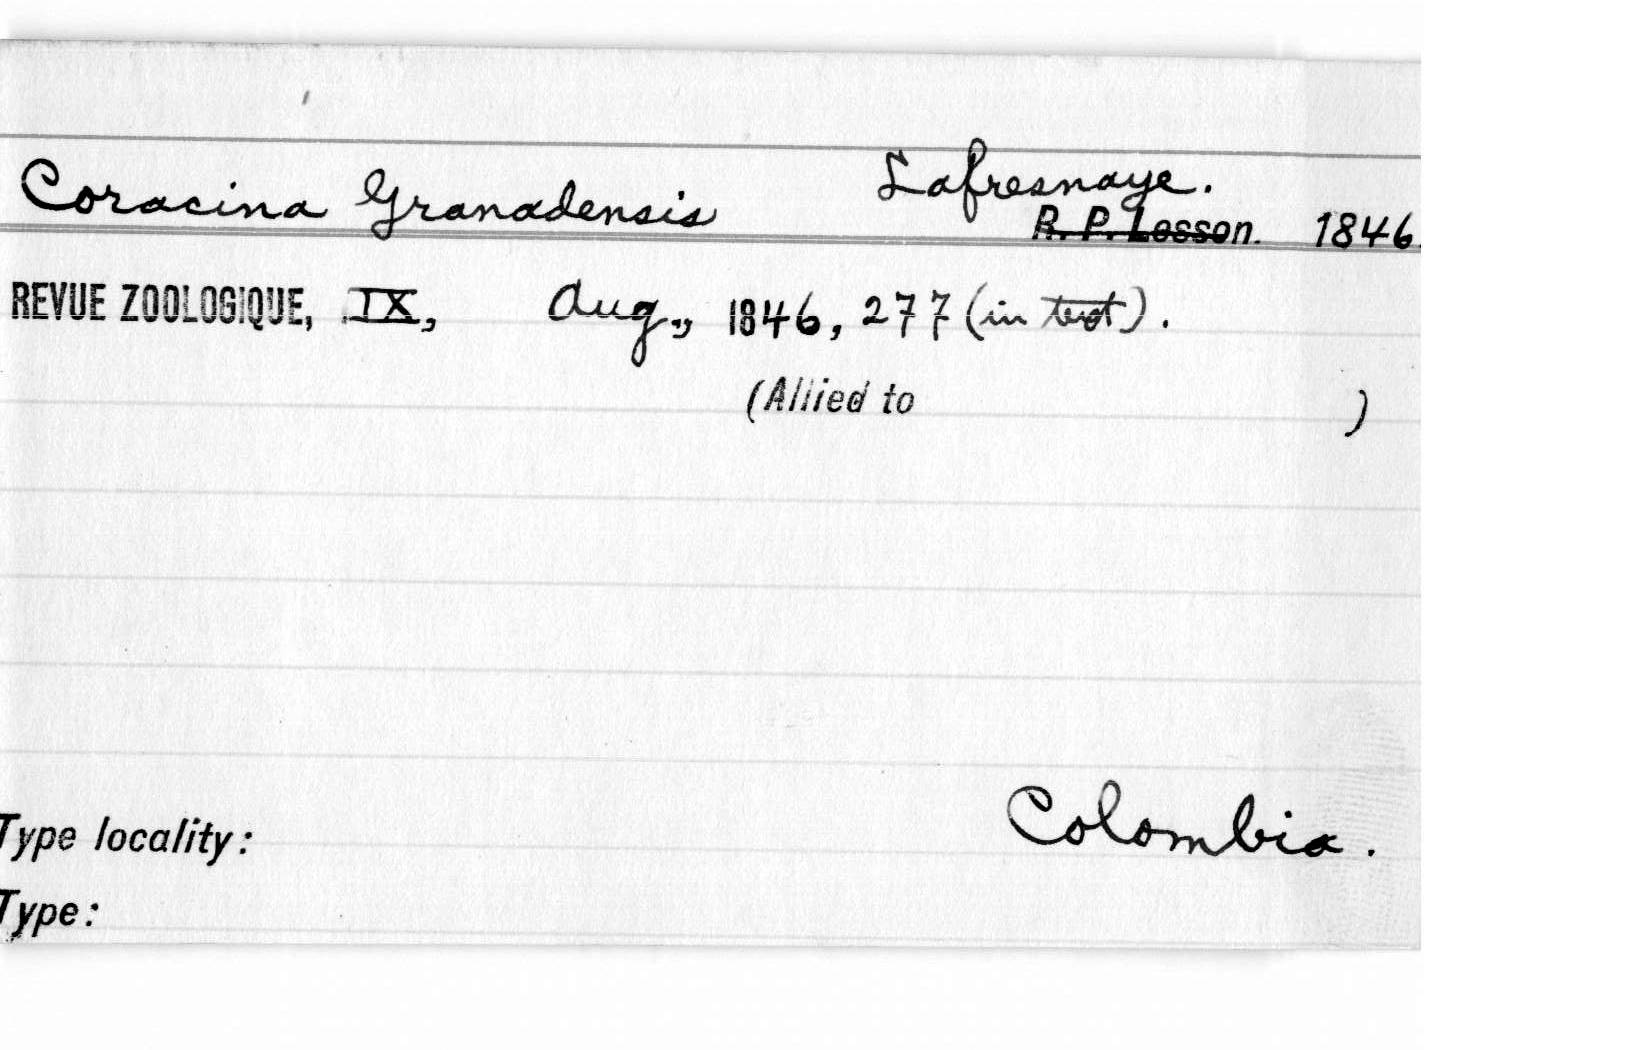 Coracina Granadensis Lafresnaye.
R. P. Lesson. 1846.
REVUE ZOOLOGIQUE, IX, Aug., 1846, 277 (in text).
(Allied to )
Type locality: Colombia.
Type: